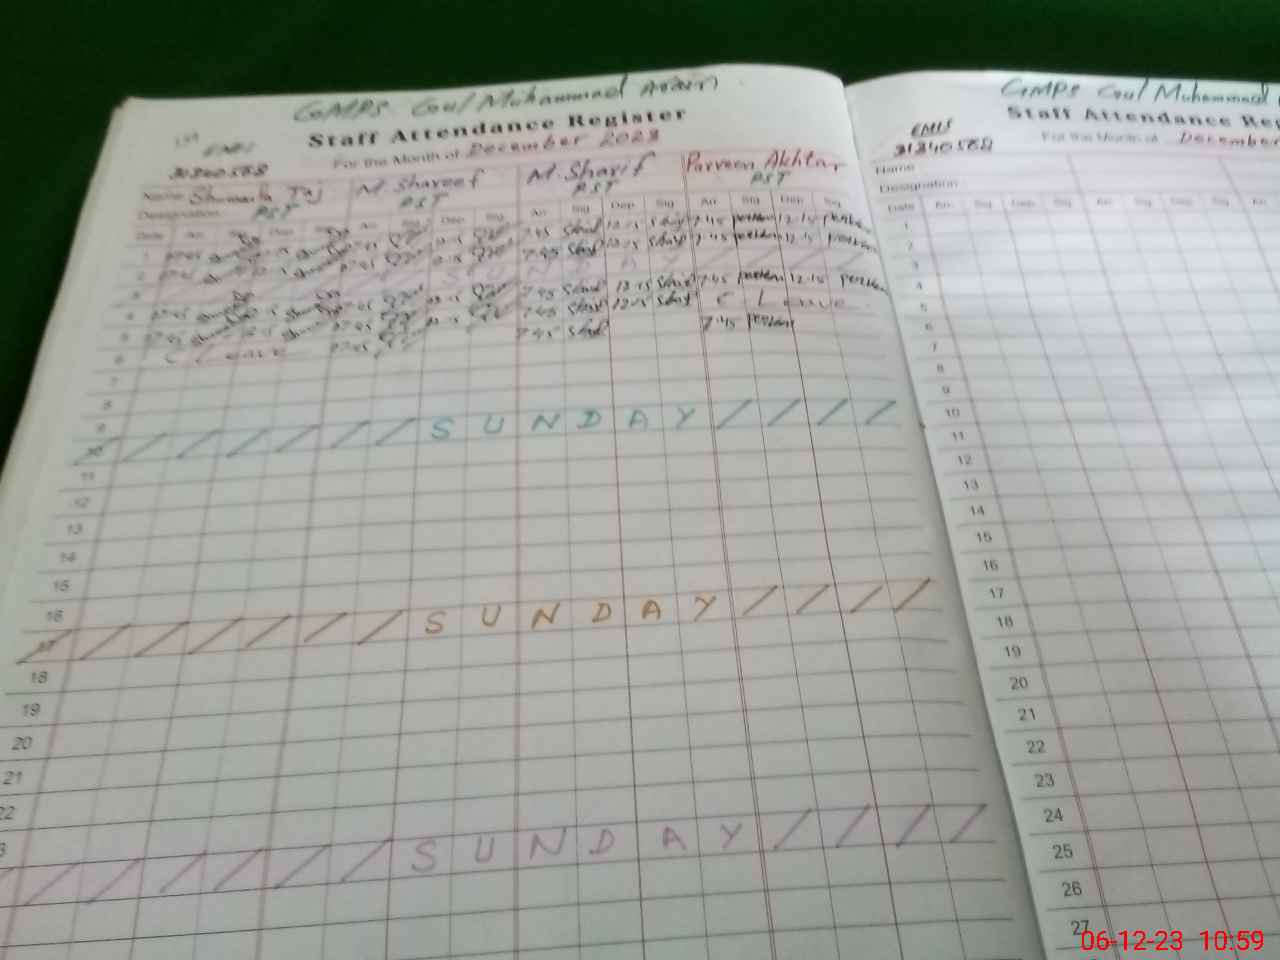 GMPS. Gul Muhammad Arain
Staff Attendance Register
For the Month of December 2023
EMIS
31340568
Name Shumaila Taj M. Shareef M. Sharif Parveen Akhtar
Designation PST PST PST PST
Date Arr Sig Dep Sig Arr Sig Dep Sig Arr Sig Dep Sig Arr Sig Dep Sig
1 07:45 07:45 12:15 7:45 Sharif 12:15 Sharif 7:45 12:15
2 07:45 07:45 12:15 7:45 Sharif 12:15 Sharif 7:45 12:15
3 S U N D A Y
4 07:45 07:45 12:15 7:45 Sharif 12:15 Sharif 7:45 12:15
5 07:45 12:15 07:45 12:15 7:45 Sharif 12:15 Sharif C Leave
6 C Leave 07:45 7:45 Sharif 7:45
7
8
9
10 S U N D A Y
11
12
13
14
15
16
17 S U N D A Y
18
19
20
21
22
3
S U N D A Y
GMPS Gul Muhammad
Staff Attendance Reg
EMIS
31340568
For the Month of December
Name
Designation
Date Arr Sig Dep Sig Arr Sig Dep Sig Arr
1
2
3
4
5
6
7
8
9
10
11
12
13
14
15
16
17
18
19
20
21
22
23
24
25
26
27
06-12-23 10:59